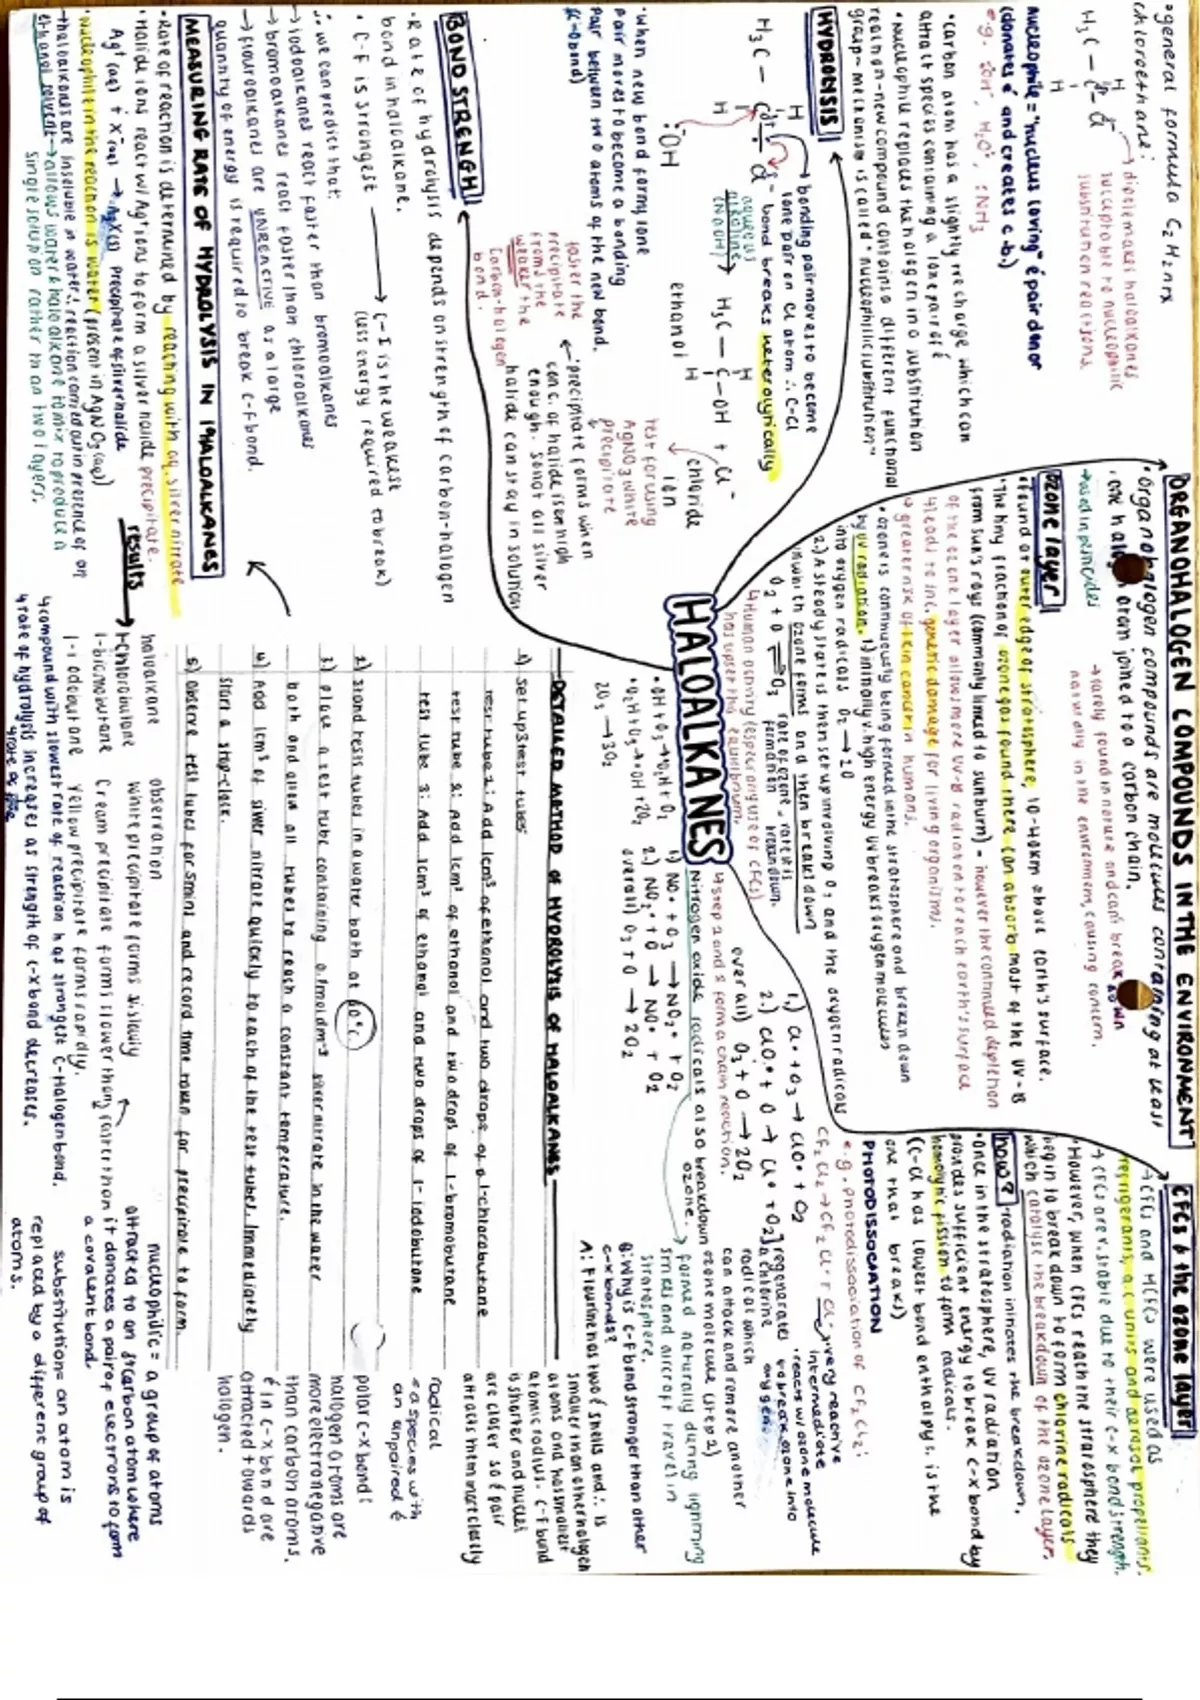 HALOALKANES
• general formula CnH2n+1X
chloroethane:
H₃C — C — Cl
H
H
→ dipole makes haloalkanes
succeptable to nucleophilic
substitution reactions.
nucleophile = "nucleus loving" é pair donor
(donates é and creates c.b.)
e.g. :OH⁻, H₂O:, :NH₃
HYDROLYSIS
• carbon atom has a slightly +ve charge which can
attract species containing a lone pair of é
• Nucleophile replaces the halogen in a substitution
reaction - new compound contains a different functional
group - mechanism is called "nucleophilic substitution"
→ bonding pair moves to become
lone pair on Cl atom ∴ C-Cl
bond breaks heterolytically
H₃C — C — Cl
:OH
aqueous
alkaline
(NaOH)
H₃C — C — OH + Cl⁻
ethanol
chloride
ion
test for using
AgNO₃ white
precipitate
• When new bond forms, lone
pair moves to become a bonding
pair between two atoms of the new bond.
BOND STRENGTH
• Rate of hydrolysis depends on strength of carbon-halogen
bond in haloalkane.
• C-F is strongest → C-I is the weakest
(less energy required to break)
∴ we can predict that:
→ iodoalkanes react faster than bromoalkanes
→ bromoalkanes react faster than chloroalkanes
→ flouroalkanes are UNREACTIVE as a large
quantity of energy is required to break C-F bond.
faster the
precipitate
forms the
weaker the
carbon-halogen
bond.
• precipitate forms when
conc. of halide ion high
enough. so not all silver
halide can stay in solution
MEASURING RATE OF HYDROLYSIS IN HALOALKANES
• Rate of reaction is determined by reacting with aq. silver nitrate
• Halide ions react w/ Ag⁺ ions to form a silver halide precipitate.
Ag⁺(aq) + X⁻(aq) → AgX(s) precipitate of silver halide
• nucleophile in the reaction is water (present in AgNO₃(aq))
→ haloalkanes are insoluble in water ∴ reaction carried out in presence of an
ethanol solvent → allows water & haloalkane to mix to produce a
single solution rather than two layers.
results
ORGANOHALOGEN COMPOUNDS IN THE ENVIRONMENT
• Organohalogen compounds are molecules containing at least
one atom joined to a carbon chain.
→ used in pesticides
→ rarely found in nature and can't break down
naturally in the environment, causing concern.
ozone layer
• found at outer edge of stratosphere, 10-40km above earth's surface.
• The tiny fraction of ozone gas found there can absorb most of the UV-B
from sun's rays (commonly linked to sunburn) - however the continued depletion
of the ozone layer allows more UV-B radiation to reach earth's surface
↳ leads to inc. genetic damage for living organisms.
↳ greater risk of skin cancer in humans.
• ozone is continuously being formed in the stratosphere and broken down
by UV radiation. 1) initially v. high energy UV breaks oxygen molecules
into oxygen radicals O₂ → 2O
2) A steady state is then set up involving O₂ and the oxygen radicals
in which ozone forms and then breaks down
O₂ + O ⇌ O₃ rate of ozone formation = rate of its breakdown.
↳ Human activity (especially use of CFCs)
has upset this equilibrium.
• OH + O₃ → •O₂H + O₂
• O₂H + O₃ → •OH + 2O₂
2O₃ → 3O₂
1) NO• + O₃ → NO₂• + O₂
2) NO₂• + O → NO• + O₂
overall) O₃ + O → 2O₂
CFCs & the ozone layer
→ CFCs and HCFCs were used as
refrigerants, a.c units and aerosol propellants.
→ CFCs are v. stable due to their C-X bond strength.
• However, when CFCs reach the stratosphere they
begin to break down to form chlorine radicals
which catalyse the breakdown of the ozone layer.
how? • radiation initiates the breakdown.
• Once in the stratosphere, UV radiation
provides sufficient energy to break C-X bond by
homolytic fission to form radicals.
(C-Cl has lowest bond enthalpy ∴ is the
one that breaks)
PHOTODISSOCIATION
e.g. Photodissociation of CF₂Cl₂:
CF₂Cl₂ → CF₂Cl• + Cl•
→ very reactive
intermediate
• reacts w ozone molecule
to break ozone into
oxygen
1.) Cl• + O₃ → ClO• + O₂
2.) ClO• + O → Cl• + O₂
overall) O₃ + O → 2O₂
regenerates
a chlorine
radical which
can attack and remove another
ozone molecule (step 1)
↳ step 1 and 2 form a chain reaction.
Nitrogen oxide radicals also breakdown
ozone.
→ formed naturally during lightning
strikes and aircraft travel in
stratosphere.
Q: Why is C-F bond stronger than other
C-X bonds?
A: Flourine has two é shells and ∴ is
smaller than other halogen
atoms and has smallest
atomic radius. C-F bond
is shorter and nuclei
are closer so é pair
attracts them most closely
radical
= a species with
an unpaired é
polar C-X bond:
halogen atoms are
more electronegative
than carbon atoms.
é in C-X bond are
attracted towards
halogen.
DETAILED METHOD OF HYDROLYSIS OF HALOALKANES
1) Set up 3 test tubes
Test tube 1: Add 1cm³ of ethanol and two drops of 1-chlorobutane
test tube 2: Add 1cm³ of ethanol and two drops of 1-bromobutane
test tube 3: Add 1cm³ of ethanol and two drops of 1-iodobutane
2) Stand tests tubes in a water bath at 60°C
3) Place a test tube containing 0.1moldm⁻³ silver nitrate in the water
bath and allow all tubes to reach a constant temperature.
4) Add 1cm³ of silver nitrate quickly to each of the test tubes. Immediately
start a stop-clock.
5) Observe test tubes for 5mins and record time taken for precipitate to form.
haloalkane observation
1-Chlorobutane white precipitate forms slowly
1-bromobutane Cream precipitate forms slower than
1-iodobutane Yellow precipitate forms rapidly.
↳ compound with slowest rate of reaction has strongest C-Halogen bond.
↳ rate of hydrolysis increases as strength of C-X bond decreases.
nucleophile = a group of atoms
attracted to an carbon atom where
it donates a pair of electrons to form
a covalent bond.
substitution = an atom is
replaced by a different group of
atoms.